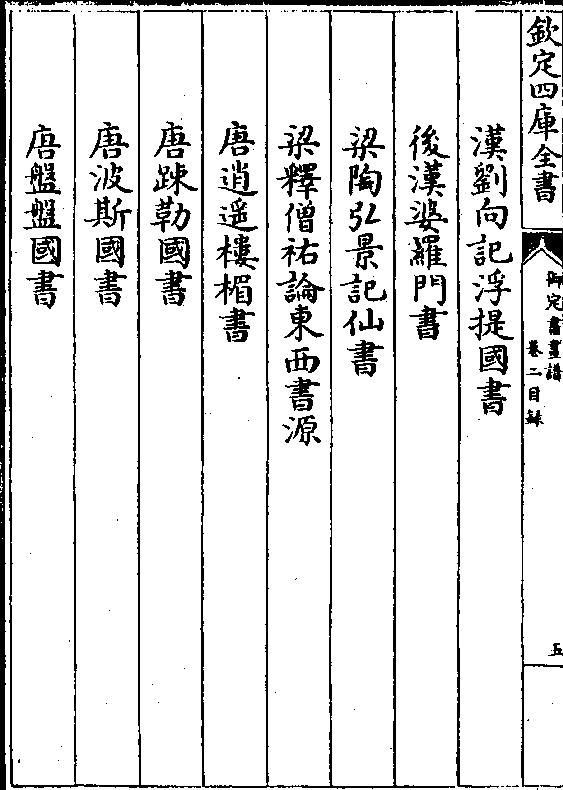 欽定四庫全書
御定書畫譜
卷二目録
五
漢劉向記浮提國書
後漢婆羅門書
梁陶弘景記仙書
梁釋僧祐論東西書源
唐逍遥樓楣書
唐踈勒國書
唐波斯國書
唐盤盤國書